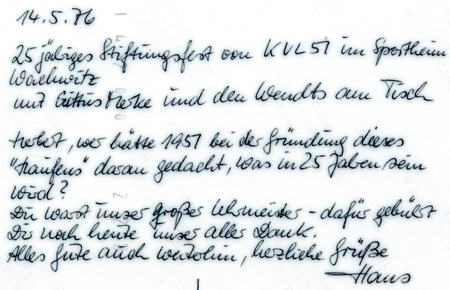 14.5.76
25 jähriges Stiftungsfest von KVL 51 im Sportheim
Wachwitz
mit Merke und den Wendts am Tisch
Herbert, wer hätte 1951 bei der Gründung dieses
"Haufens" daran gedacht, was in 25 Jahren sein
wird?
Du warst unser großer Lehrmeister - dafür gebührt
Dir noch heute unser aller Dank.
Alles Gute auch weiterhin, herzliche Grüße
Hans